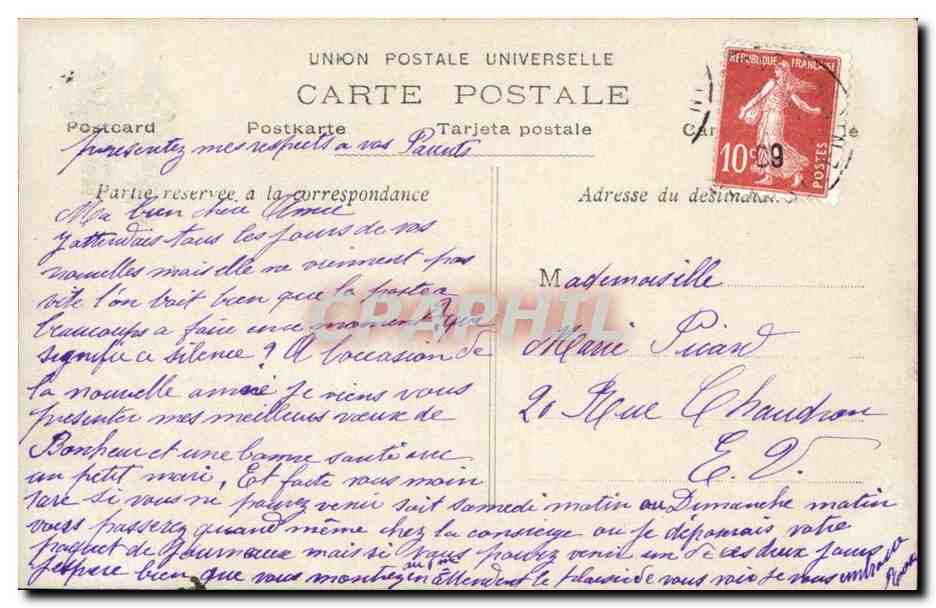 UNION POSTALE UNIVERSELLE
CARTE POSTALE
Postcard Postkarte Tarjeta postale
presentez mes respects a vos Parents
Partie réservée à la correspondance
Adresse du destinatai
REPUBLIQUE FRANÇAISE
10c
POSTES
09
Ma bien chère Amie
J'attendais tous les jours de vos
nouvelles mais elle ne viennent pas
vite l'on voit bien que la poste a
beaucoups a faire en ce moment
signifie ce silence ? A l'occasion de
la nouvelle année je viens vous
presenter mes meilleurs vœux de
Bonheur et une bonne santé avec
un petit mari. Et faite vous moin
rare si vous ne pouvez venir soit samedi matin ou Dimanche matin
vous passerez quand même chez la consierge ou je déposerais votre
paquet de Journeaux mais si vous pouvez venir un de ces deux jours
J'espère bien que vous monterez en attendent le plaisir de vous voir je vous embrasse
Mademoiselle
Marie Picard
20 Rue Chaudron
E. V.
CPAPHIL